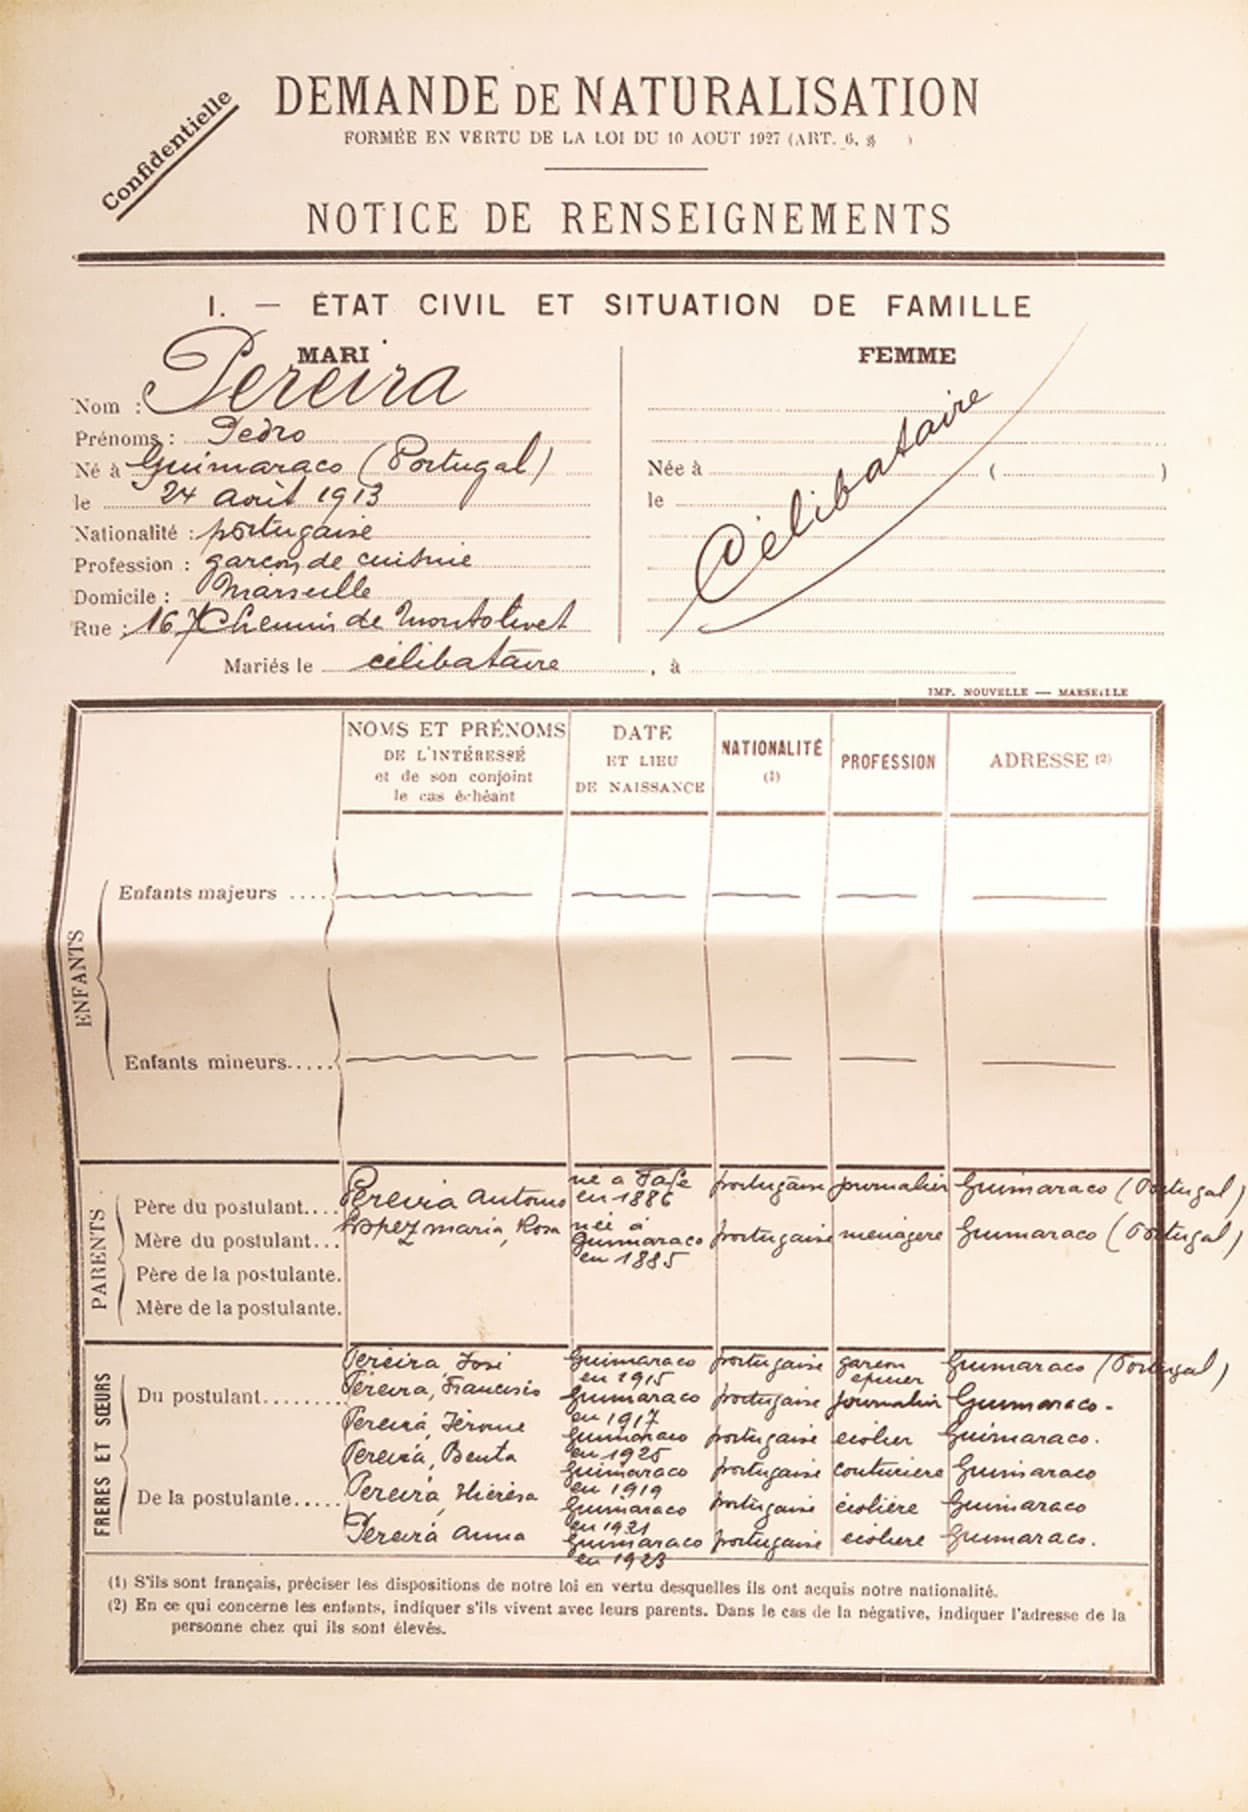 Confidentielle
DEMANDE DE NATURALISATION
FORMÉE EN VERTU DE LA LOI DU 10 AOUT 1927 (ART. 6, § )
NOTICE DE RENSEIGNEMENTS
I. — ÉTAT CIVIL ET SITUATION DE FAMILLE
MARI FEMME
Nom : Pereira
Prénoms : Pedro
Né à Guimaraco (Portugal) Née à ( )
le 24 août 1913 le
Célibataire
Nationalité : portugaise
Profession : garçon de cuisine
Domicile : Marseille
Rue : 167 Chemin de Montolivet
Mariés le célibataire , à
IMP. NOUVELLE — MARSEILLE
NOMS ET PRÉNOMS DE L'INTÉRESSÉ et de son conjoint le cas échéant
DATE ET LIEU DE NAISSANCE
NATIONALITÉ (1)
PROFESSION
ADRESSE (2)
ENFANTS
Enfants majeurs ....
Enfants mineurs.....
PARENTS
Père du postulant.... Pereira Antonio né à Fafe en 1886 portugaise journalier Guimaraco (Portugal)
Mère du postulant... Lopez maria, Rosa née à Guimaraco en 1885 portugaise ménagère Guimaraco (Portugal)
Père de la postulante.
Mère de la postulante.
FRÈRES ET SŒURS
Du postulant........
De la postulante.....
Pereira, José Guimaraco en 1915 portugaise garçon épicier Guimaraco (Portugal)
Pereira, Francisco Guimaraco en 1917 portugaise journalier Guimaraco.
Pereira, Jérome Guimaraco en 1925 portugaise écolier Guimaraco.
Pereira, Benta Guimaraco en 1919 portugaise couturière Guimaraco
Pereira, Thérèsa Guimaraco en 1921 portugaise écolière Guimaraco
Pereira Anna Guimaraco en 1923 portugaise écolière Guimaraco.
(1) S'ils sont français, préciser les dispositions de notre loi en vertu desquelles ils ont acquis notre nationalité.
(2) En ce qui concerne les enfants, indiquer s'ils vivent avec leurs parents. Dans le cas de la négative, indiquer l'adresse de la
personne chez qui ils sont élevés.